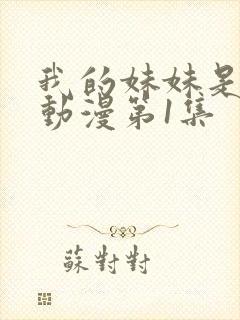 我的妹妹是
動漫第1集
蘇對對